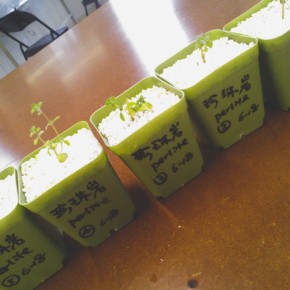 珍珠岩
perlite
① 6-18
珍珠岩
perlite
② 6-18
珍珠岩
perlite
③ 6-18
珍珠岩
perlite
④ 6-18